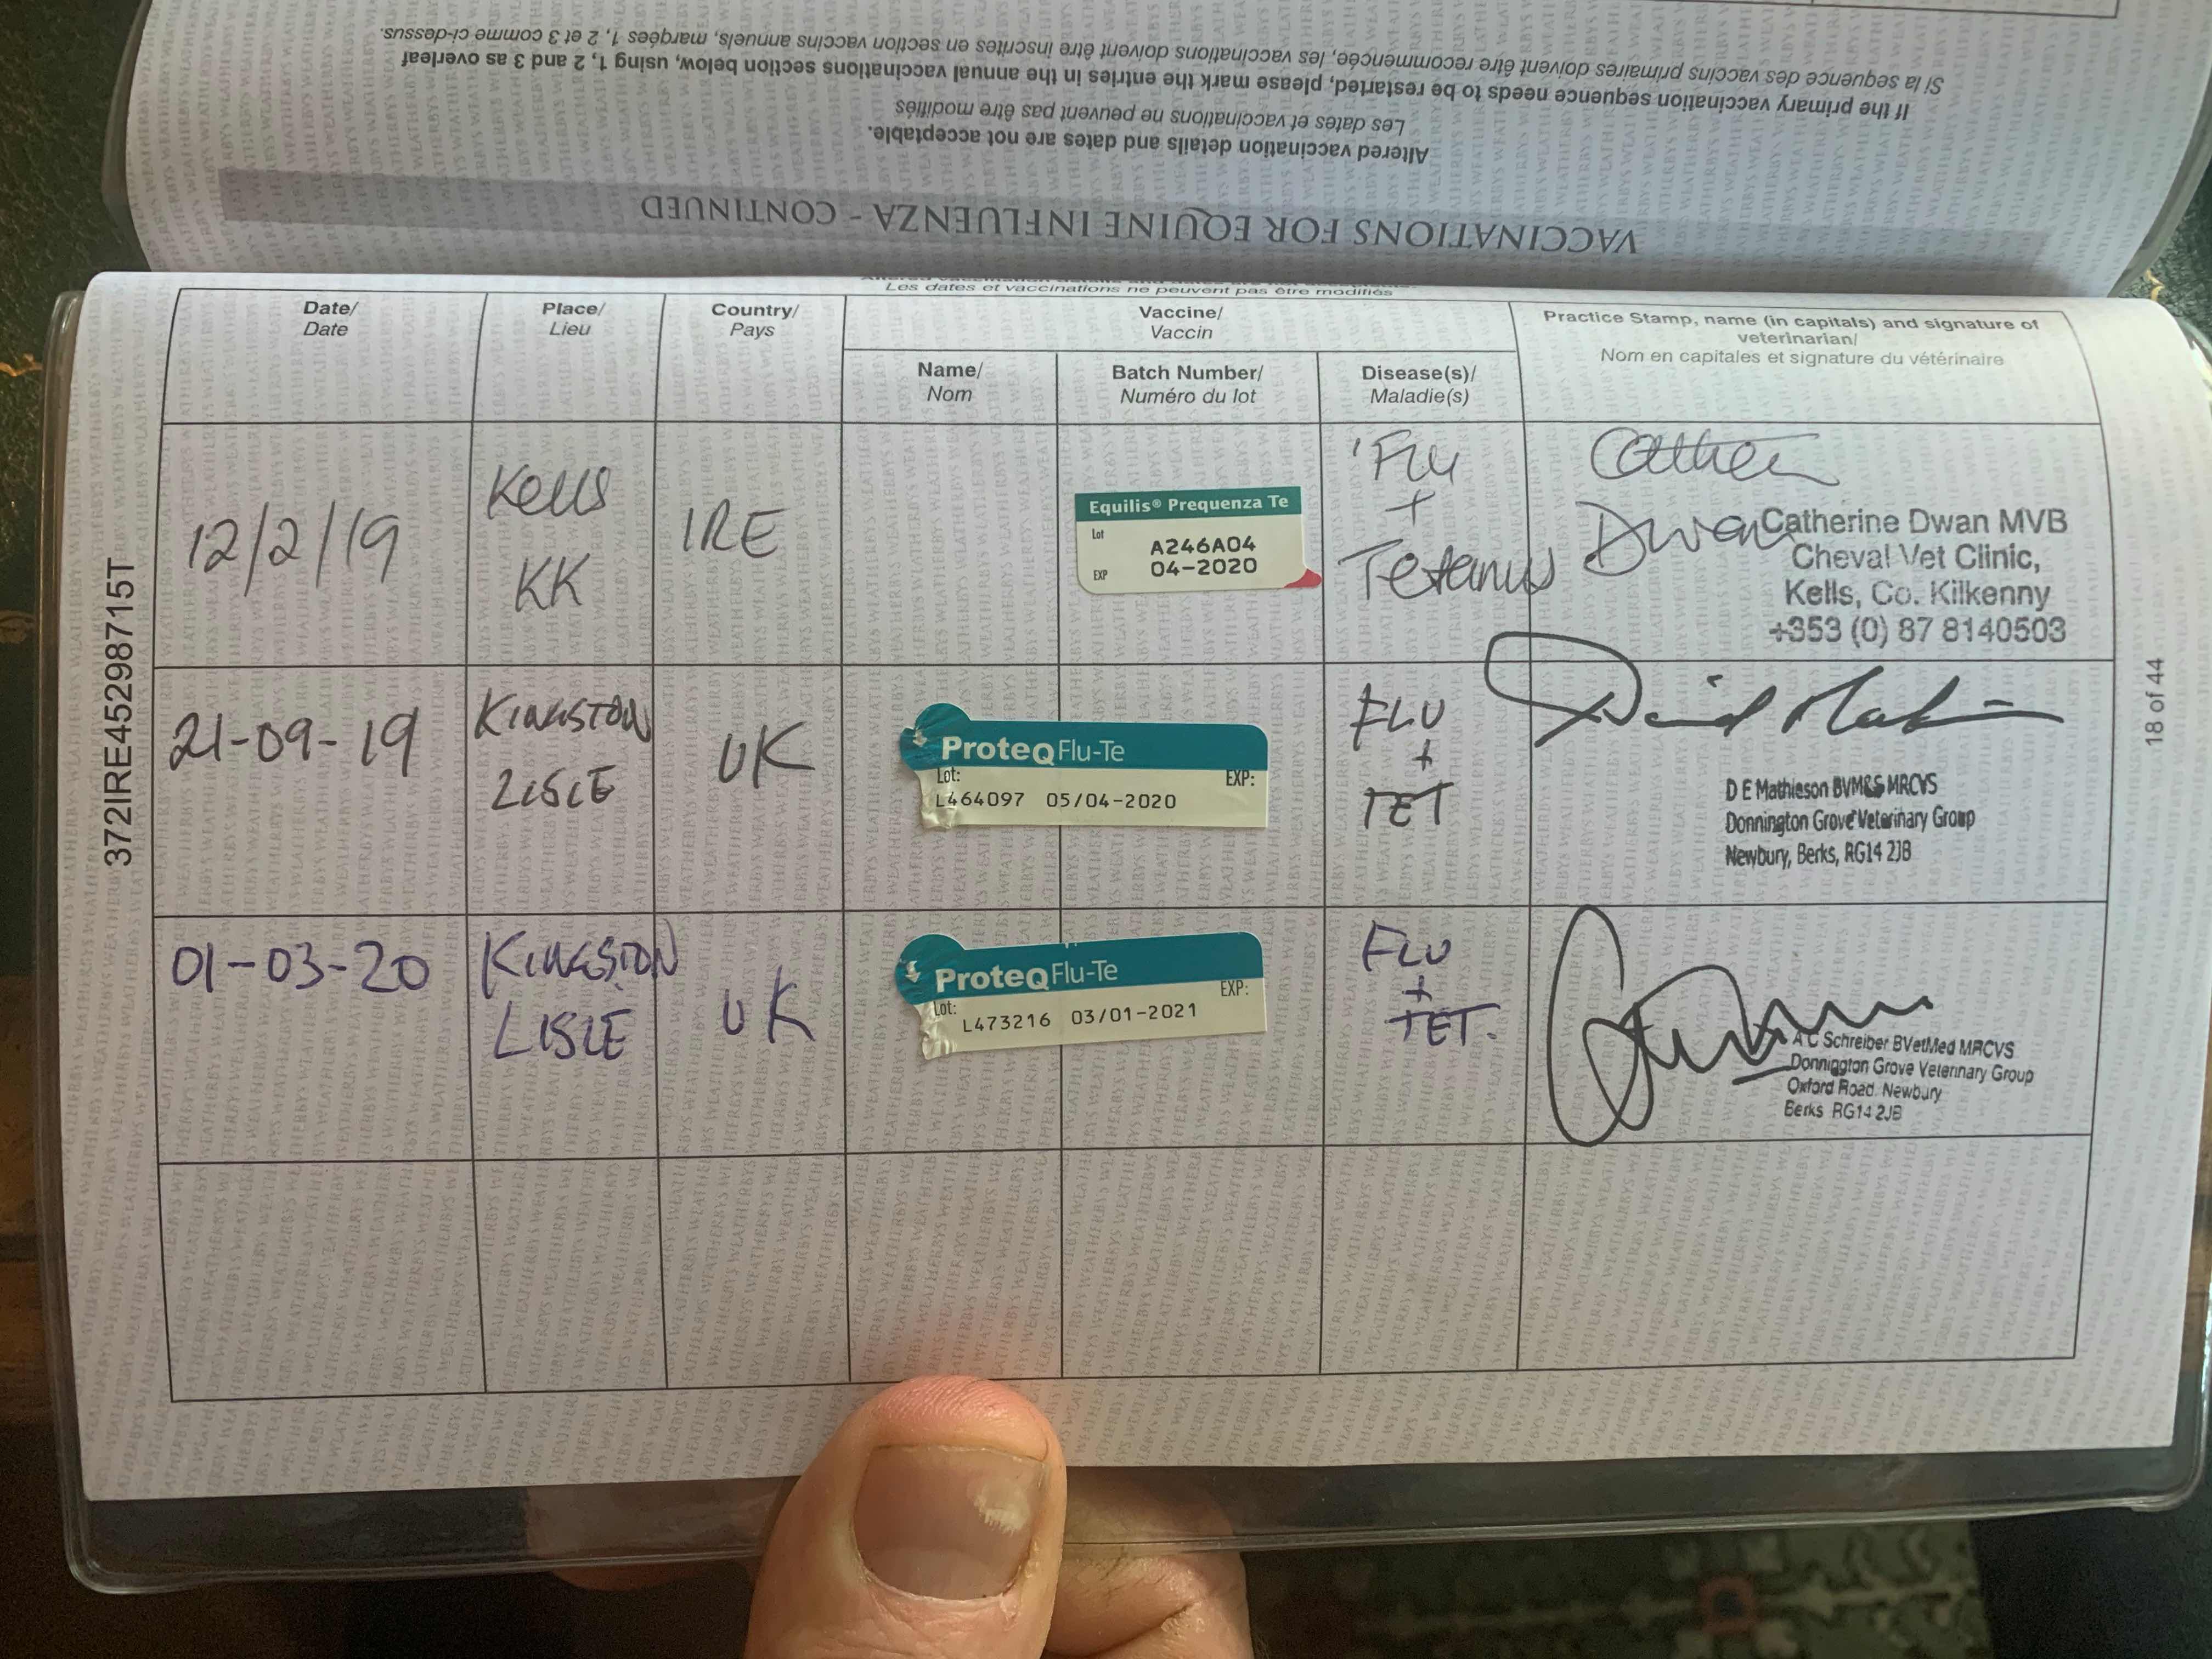 VACCINATIONS FOR EQUINE INFLUENZA - CONTINUED
Altered vaccination details and dates are not acceptable.
Les dates et vaccinations ne peuvent pas être modifiés
If the primary vaccination sequence needs to be restarted, please mark the entries in the annual vaccinations section below, using 1, 2 and 3 as overleaf
Si la sequence des vaccins primaires doivent être recommencée, les vaccinations doivent être inscrites en section vaccins annuels, marqées 1, 2 et 3 comme ci-dessus.
Les dates et vaccinations ne peuvent pas être modifiés
Date/
Date
Place/
Lieu
Country/
Pays
Vaccine/
Vaccin
Name/
Nom
Batch Number/
Numéro du lot
Disease(s)/
Maladie(s)
Practice Stamp, name (in capitals) and signature of
veterinarian/
Nom en capitales et signature du vétérinaire
12/2/19
Kells
KK
IRE
Equilis® Prequenza Te
Lot
A246A04
EXP 04-2020
'Flu
+
Tetanus
Dwan
Catherine Dwan MVB
Cheval Vet Clinic,
Kells, Co. Kilkenny
+353 (0) 87 8140503
21-09-19
KINGSTON
LISLE
UK
ProteqFlu-Te
Lot: EXP:
L464097 05/04-2020
FLU
+
TET
D E Mathieson BVM&S MRCVS
Donnington Grove Veterinary Group
Newbury, Berks, RG14 2JB
01-03-20
KINGSTON
LISLE
UK
ProteqFlu-Te
Lot: EXP:
L473216 03/01-2021
FLU
+
TET.
A C Schreiber BVetMed MRCVS
Donnington Grove Veterinary Group
Oxford Road, Newbury
Berks RG14 2JB
372IRE45298715T
18 of 44